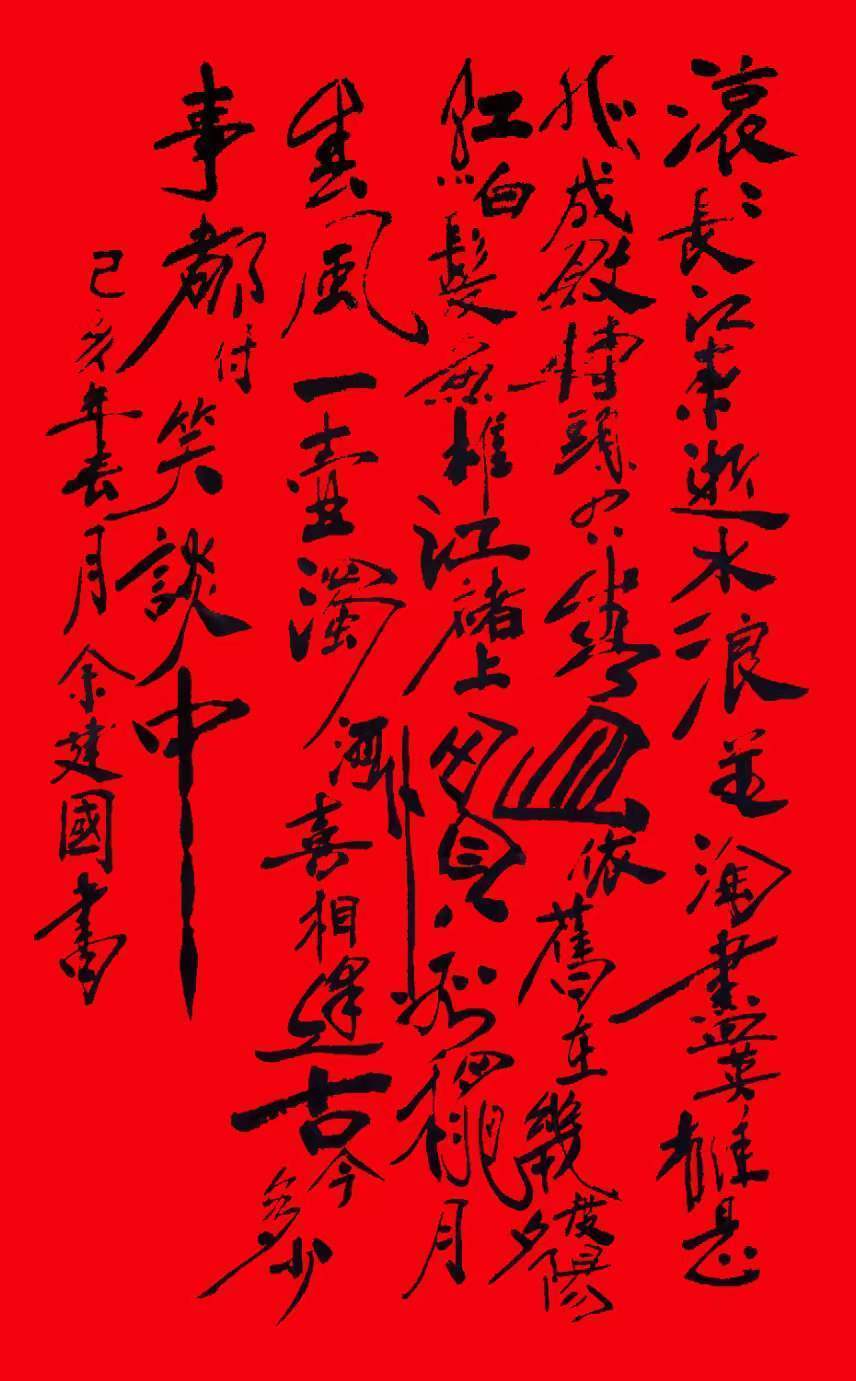 滚〻長江東逝水浪花淘盡英雄是
非成敗轉頭空青山依舊在幾度夕陽
紅白髮漁樵江渚上慣看秋月
春風一壺濁酒喜相逢古今多少
事都付笑談中
己亥年春月余建國書